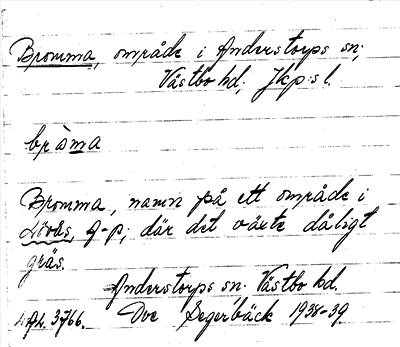 Bromma, område i Anderstorps sn;
Västbo hd; Jkp:s l.
bràma
Bromma, namn på ett område i
Lövås, A-p; där det växte dåligt
gräs.
Anderstorps sn. Västbo hd.
4AL. 3766. Ove Segerbäck 1938-39.